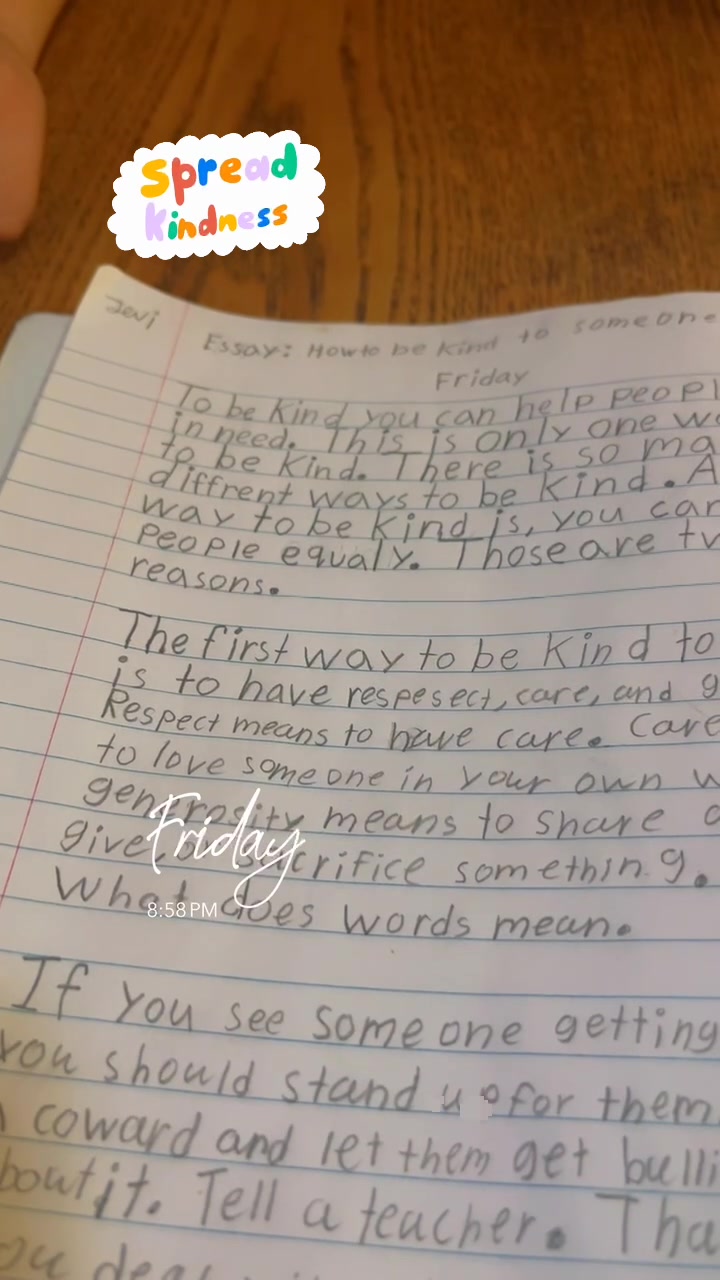 spread
kindness
Jevi
Essay: How to be kind to someone
Friday
To be kind you can help peopl
in need. This is only one w
to be kind. There is so ma
diffrent ways to be kind. A
way to be kind is, you can
people equaly. Those are tw
reasons.
The first way to be kind to
is to have respesect, care, and g
Respect means to have care. Care
to love someone in your own w
generosity means to share
give, or sacrifice something.
What does words mean.
Friday
8:58 PM
If you see someone getting
you should stand up for them
coward and let them get bulli
bout it. Tell a teacher. Tha
ou deal